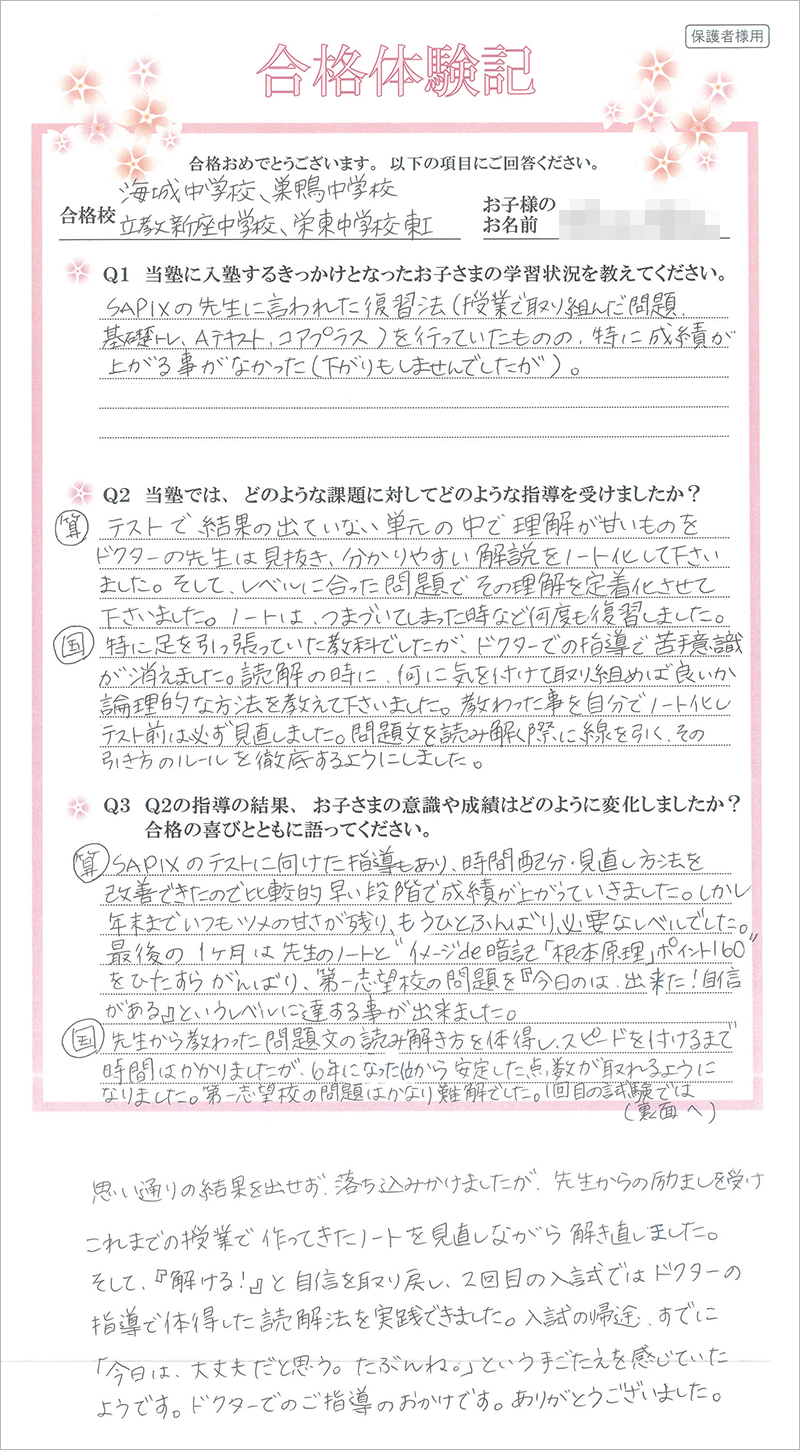 保護者様用
合格体験記
合格おめでとうございます。以下の項目にご回答ください。
合格校 海城中学校、巣鴨中学校
立教新座中学校、栄東中学校東I
お子様の
お名前
Q1 当塾に入塾するきっかけとなったお子さまの学習状況を教えてください。
SAPIXの先生に言われた復習法(授業で取り組んだ問題、
基礎トレ、Aテキスト、コアプラス)を行っていたものの、特に成績が
上がる事がなかった(下がりもしませんでしたが)。
Q2 当塾では、どのような課題に対してどのような指導を受けましたか?
算 テストで結果の出ていない単元の中で理解が甘いものを
ドクターの先生は見抜き、分かりやすい解説をノート化して下さい
ました。そして、レベルに合った問題でその理解を定着化させて
下さいました。ノートは、つまづいてしまった時など何度も復習しました。
国 特に足を引っ張っていた教科でしたが、ドクターでの指導で苦手意識
が消えました。読解の時に、何に気を付けて取り組めば良いか
論理的な方法を教えて下さいました。教わった事を自分でノート化し
テスト前は必ず見直しました。問題文を読み解く際に線を引く、その
引き方のルールを徹底するようにしました。
Q3 Q2の指導の結果、お子さまの意識や成績はどのように変化しましたか?
合格の喜びとともに語ってください。
算 SAPIXのテストに向けた指導もあり、時間配分・見直し方法を
改善できたので比較的早い段階で成績が上がっていきました。しかし
年末までいつもツメの甘さが残り、もうひとふんばり必要なレベルでした。
最後の1ヶ月は先生のノートと"イメージde暗記「根本原理」ポイント160"
をひたすらがんばり、第一志望校の問題を『今日のは、出来た!自信
がある』というレベルに達する事が出来ました。
国 先生から教わった問題文の読み解き方を体得し、スピードを付けるまで
時間はかかりましたが、6年になった頃から安定した点数が取れるように
なりました。第一志望校の問題はかなり難解でした。1回目の試験では
(裏面へ)
思い通りの結果を出せず、落ち込みかけましたが、先生からの励ましを受け
これまでの授業で作ってきたノートを見直しながら解き直しました。
そして、『解ける!』と自信を取り戻し、2回目の入試ではドクターの
指導で体得した読解法を実践できました。入試の帰途、すでに
「今日は、大丈夫だと思う。たぶんね。」という手ごたえを感じていた
ようです。ドクターでのご指導のおかげです。ありがとうございました。